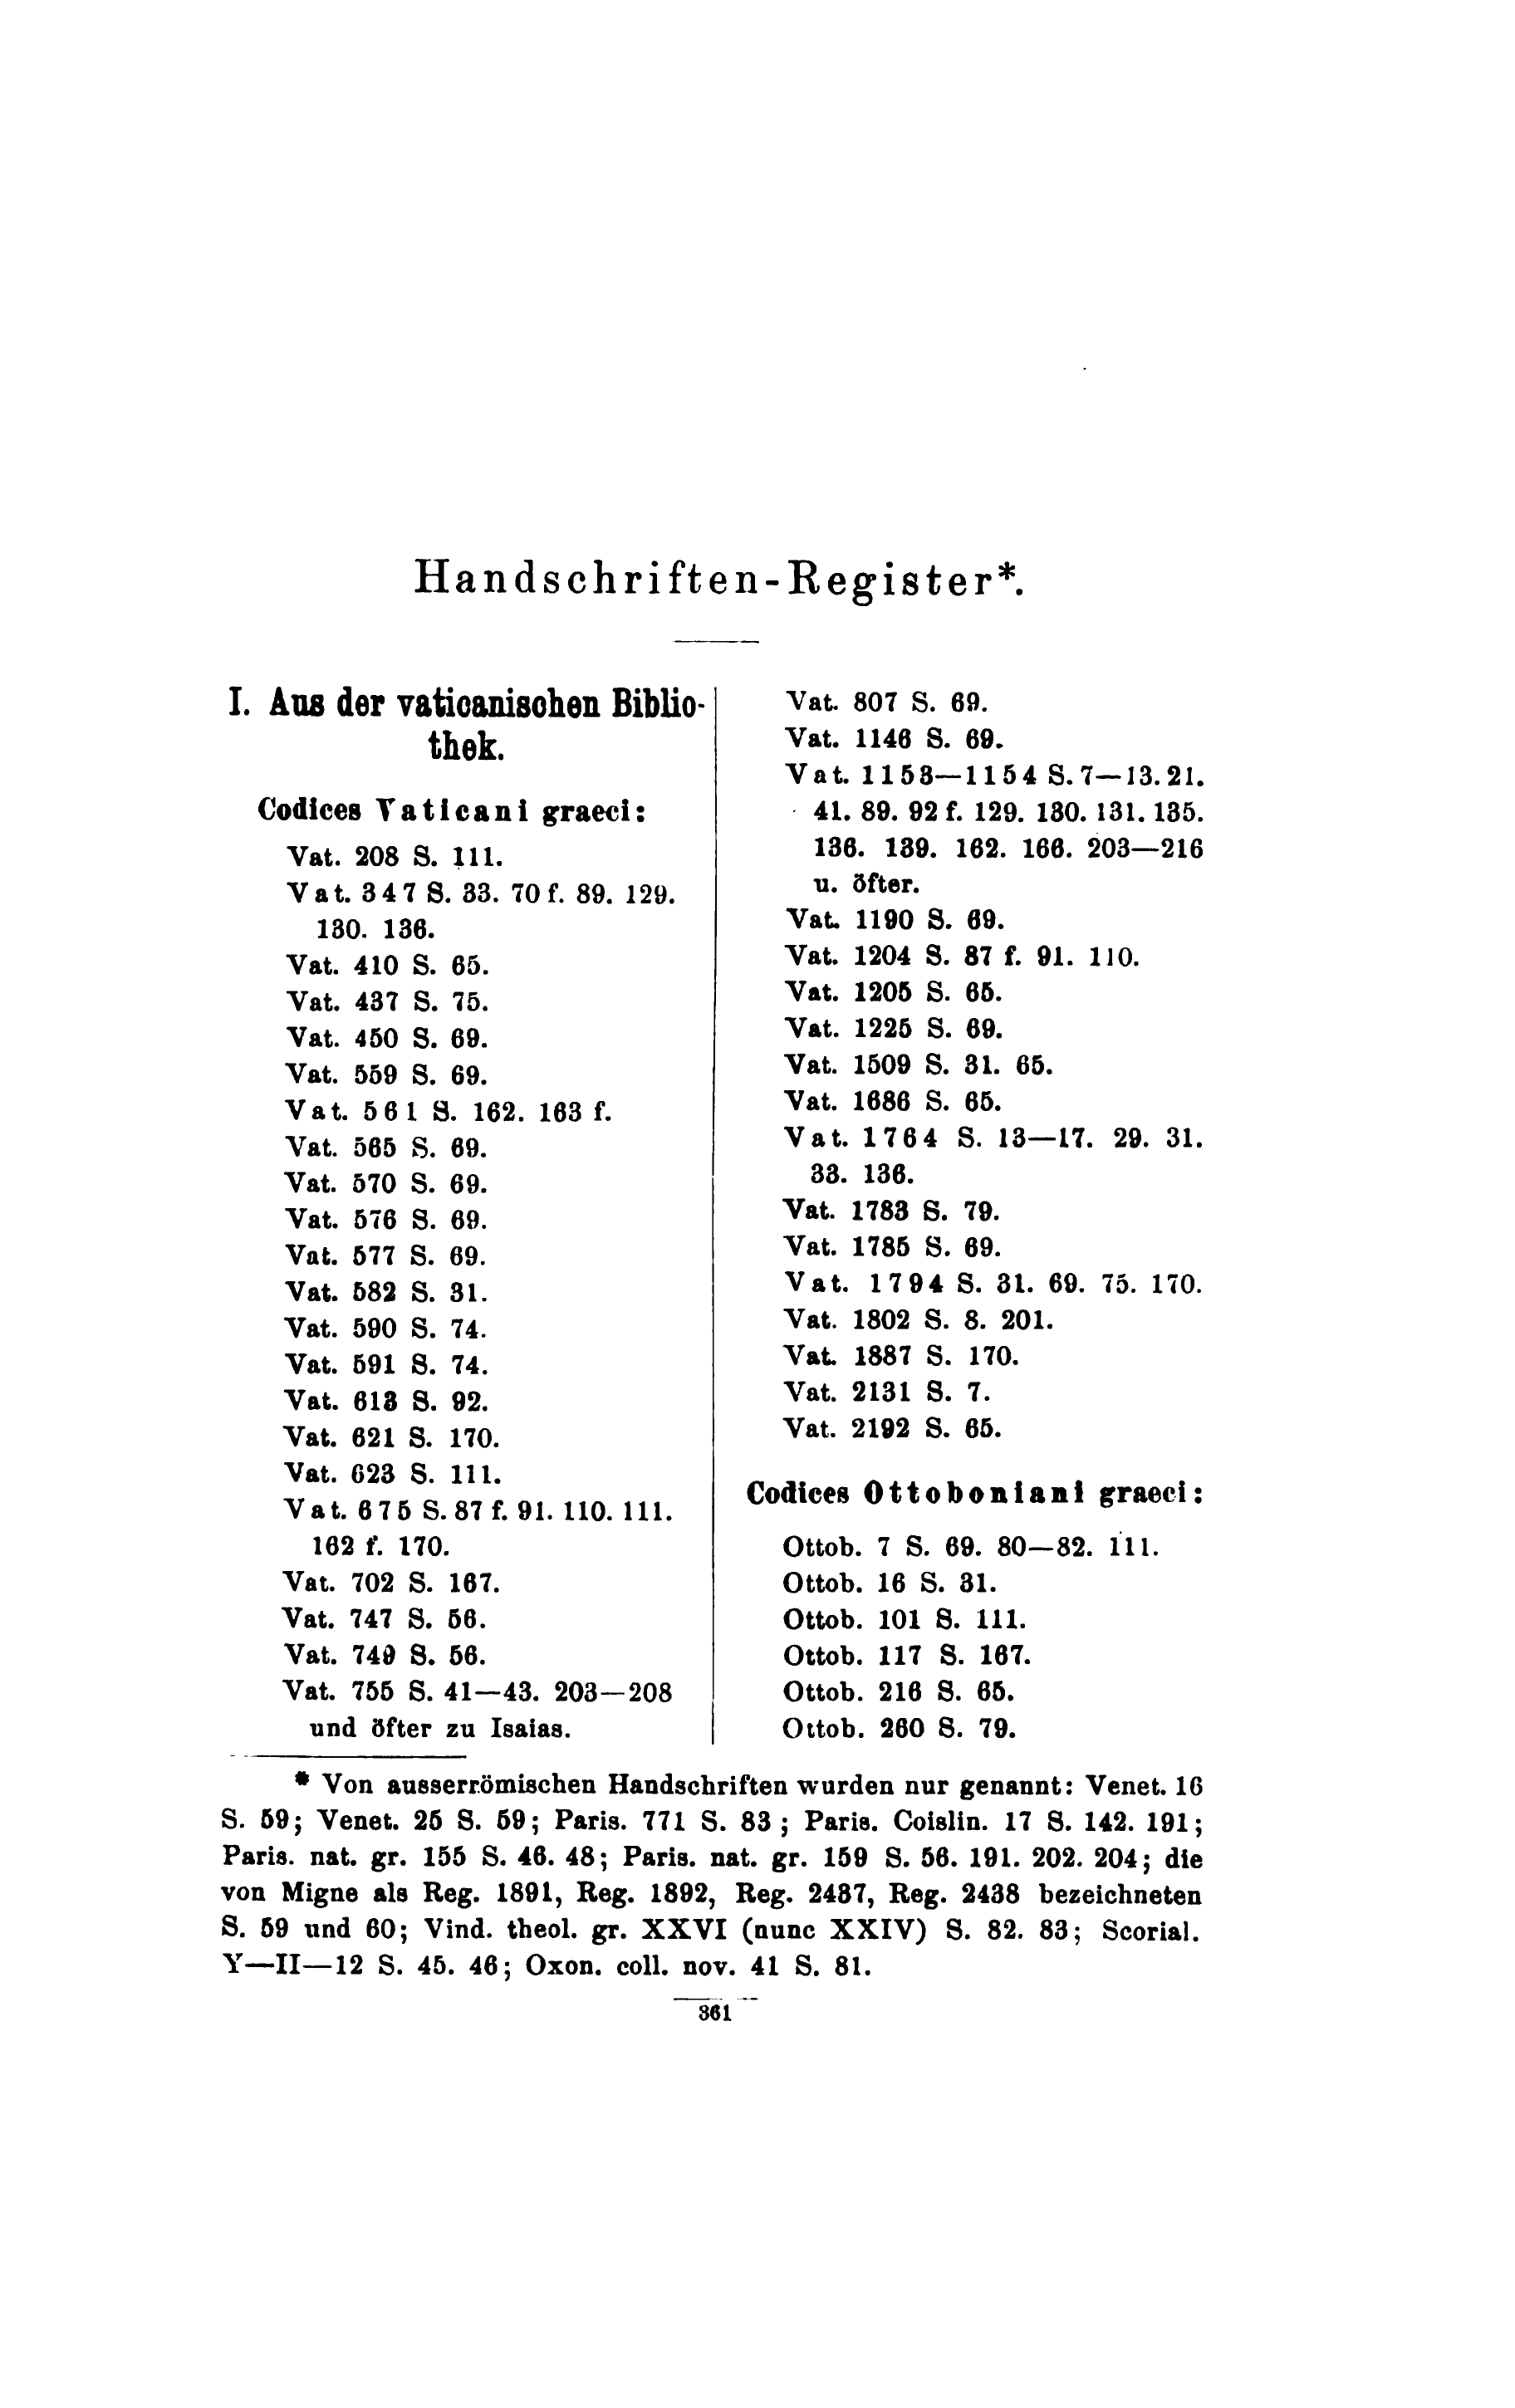 Handschriften-Register*.
I. Aus der vaticanischen Biblio-
thek.
Codices Vaticani graeci:
Vat. 208 S. 111.
Vat. 347 S. 33. 70 f. 89. 129.
130. 136.
Vat. 410 S. 65.
Vat. 437 S. 75.
Vat. 450 S. 69.
Vat. 559 S. 69.
Vat. 561 S. 162. 163 f.
Vat. 565 S. 69.
Vat. 570 S. 69.
Vat. 576 S. 69.
Vat. 577 S. 69.
Vat. 582 S. 31.
Vat. 590 S. 74.
Vat. 591 S. 74.
Vat. 613 S. 92.
Vat. 621 S. 170.
Vat. 623 S. 111.
Vat. 675 S. 87 f. 91. 110. 111.
162 f. 170.
Vat. 702 S. 167.
Vat. 747 S. 56.
Vat. 749 S. 56.
Vat. 755 S. 41—43. 203—208
und öfter zu Isaias.
Vat. 807 S. 69.
Vat. 1146 S. 69.
Vat. 1153—1154 S. 7—13. 21.
41. 89. 92 f. 129. 130. 131. 135.
136. 139. 162. 166. 203—216
u. öfter.
Vat. 1190 S. 69.
Vat. 1204 S. 87 f. 91. 110.
Vat. 1205 S. 65.
Vat. 1225 S. 69.
Vat. 1509 S. 31. 65.
Vat. 1686 S. 65.
Vat. 1764 S. 13—17. 29. 31.
33. 136.
Vat. 1783 S. 79.
Vat. 1785 S. 69.
Vat. 1794 S. 31. 69. 75. 170.
Vat. 1802 S. 8. 201.
Vat. 1887 S. 170.
Vat. 2131 S. 7.
Vat. 2192 S. 65.
Codices Ottoboniani graeci:
Ottob. 7 S. 69. 80—82. 111.
Ottob. 16 S. 31.
Ottob. 101 S. 111.
Ottob. 117 S. 167.
Ottob. 216 S. 65.
Ottob. 260 S. 79.
* Von ausserrömischen Handschriften wurden nur genannt: Venet. 16
S. 59; Venet. 25 S. 59; Paris. 771 S. 83; Paris. Coislin. 17 S. 142. 191;
Paris. nat. gr. 155 S. 46. 48; Paris. nat. gr. 159 S. 56. 191. 202. 204; die
von Migne als Reg. 1891, Reg. 1892, Reg. 2437, Reg. 2438 bezeichneten
S. 59 und 60; Vind. theol. gr. XXVI (nunc XXIV) S. 82. 83; Scorial.
Y—II—12 S. 45. 46; Oxon. coll. nov. 41 S. 81.
361